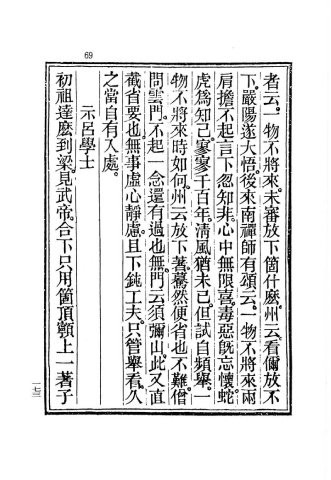 69
者云。一物不將來。未審放下箇什麼。州云。看儞放不
下。嚴陽遂大悟。後來南禪師有頌云。一物不將來。兩
肩擔不起。言下忽知非。心中無限喜。毒惡旣忘懷。蛇
虎爲知己。寥寥千百年。淸風猶未已。但試自頻舉。一
物不將來時如何。州云放下著。驀然便省也不難。僧
問雲門。不起一念還有過也無。門云須彌山。此又直
截省要也。無事虛心靜慮。且下鈍工夫。只管舉看。久
之當自有入處。
示呂學士
初祖達麼到梁。見武帝。合下只用箇頂顊上一著子
一七三